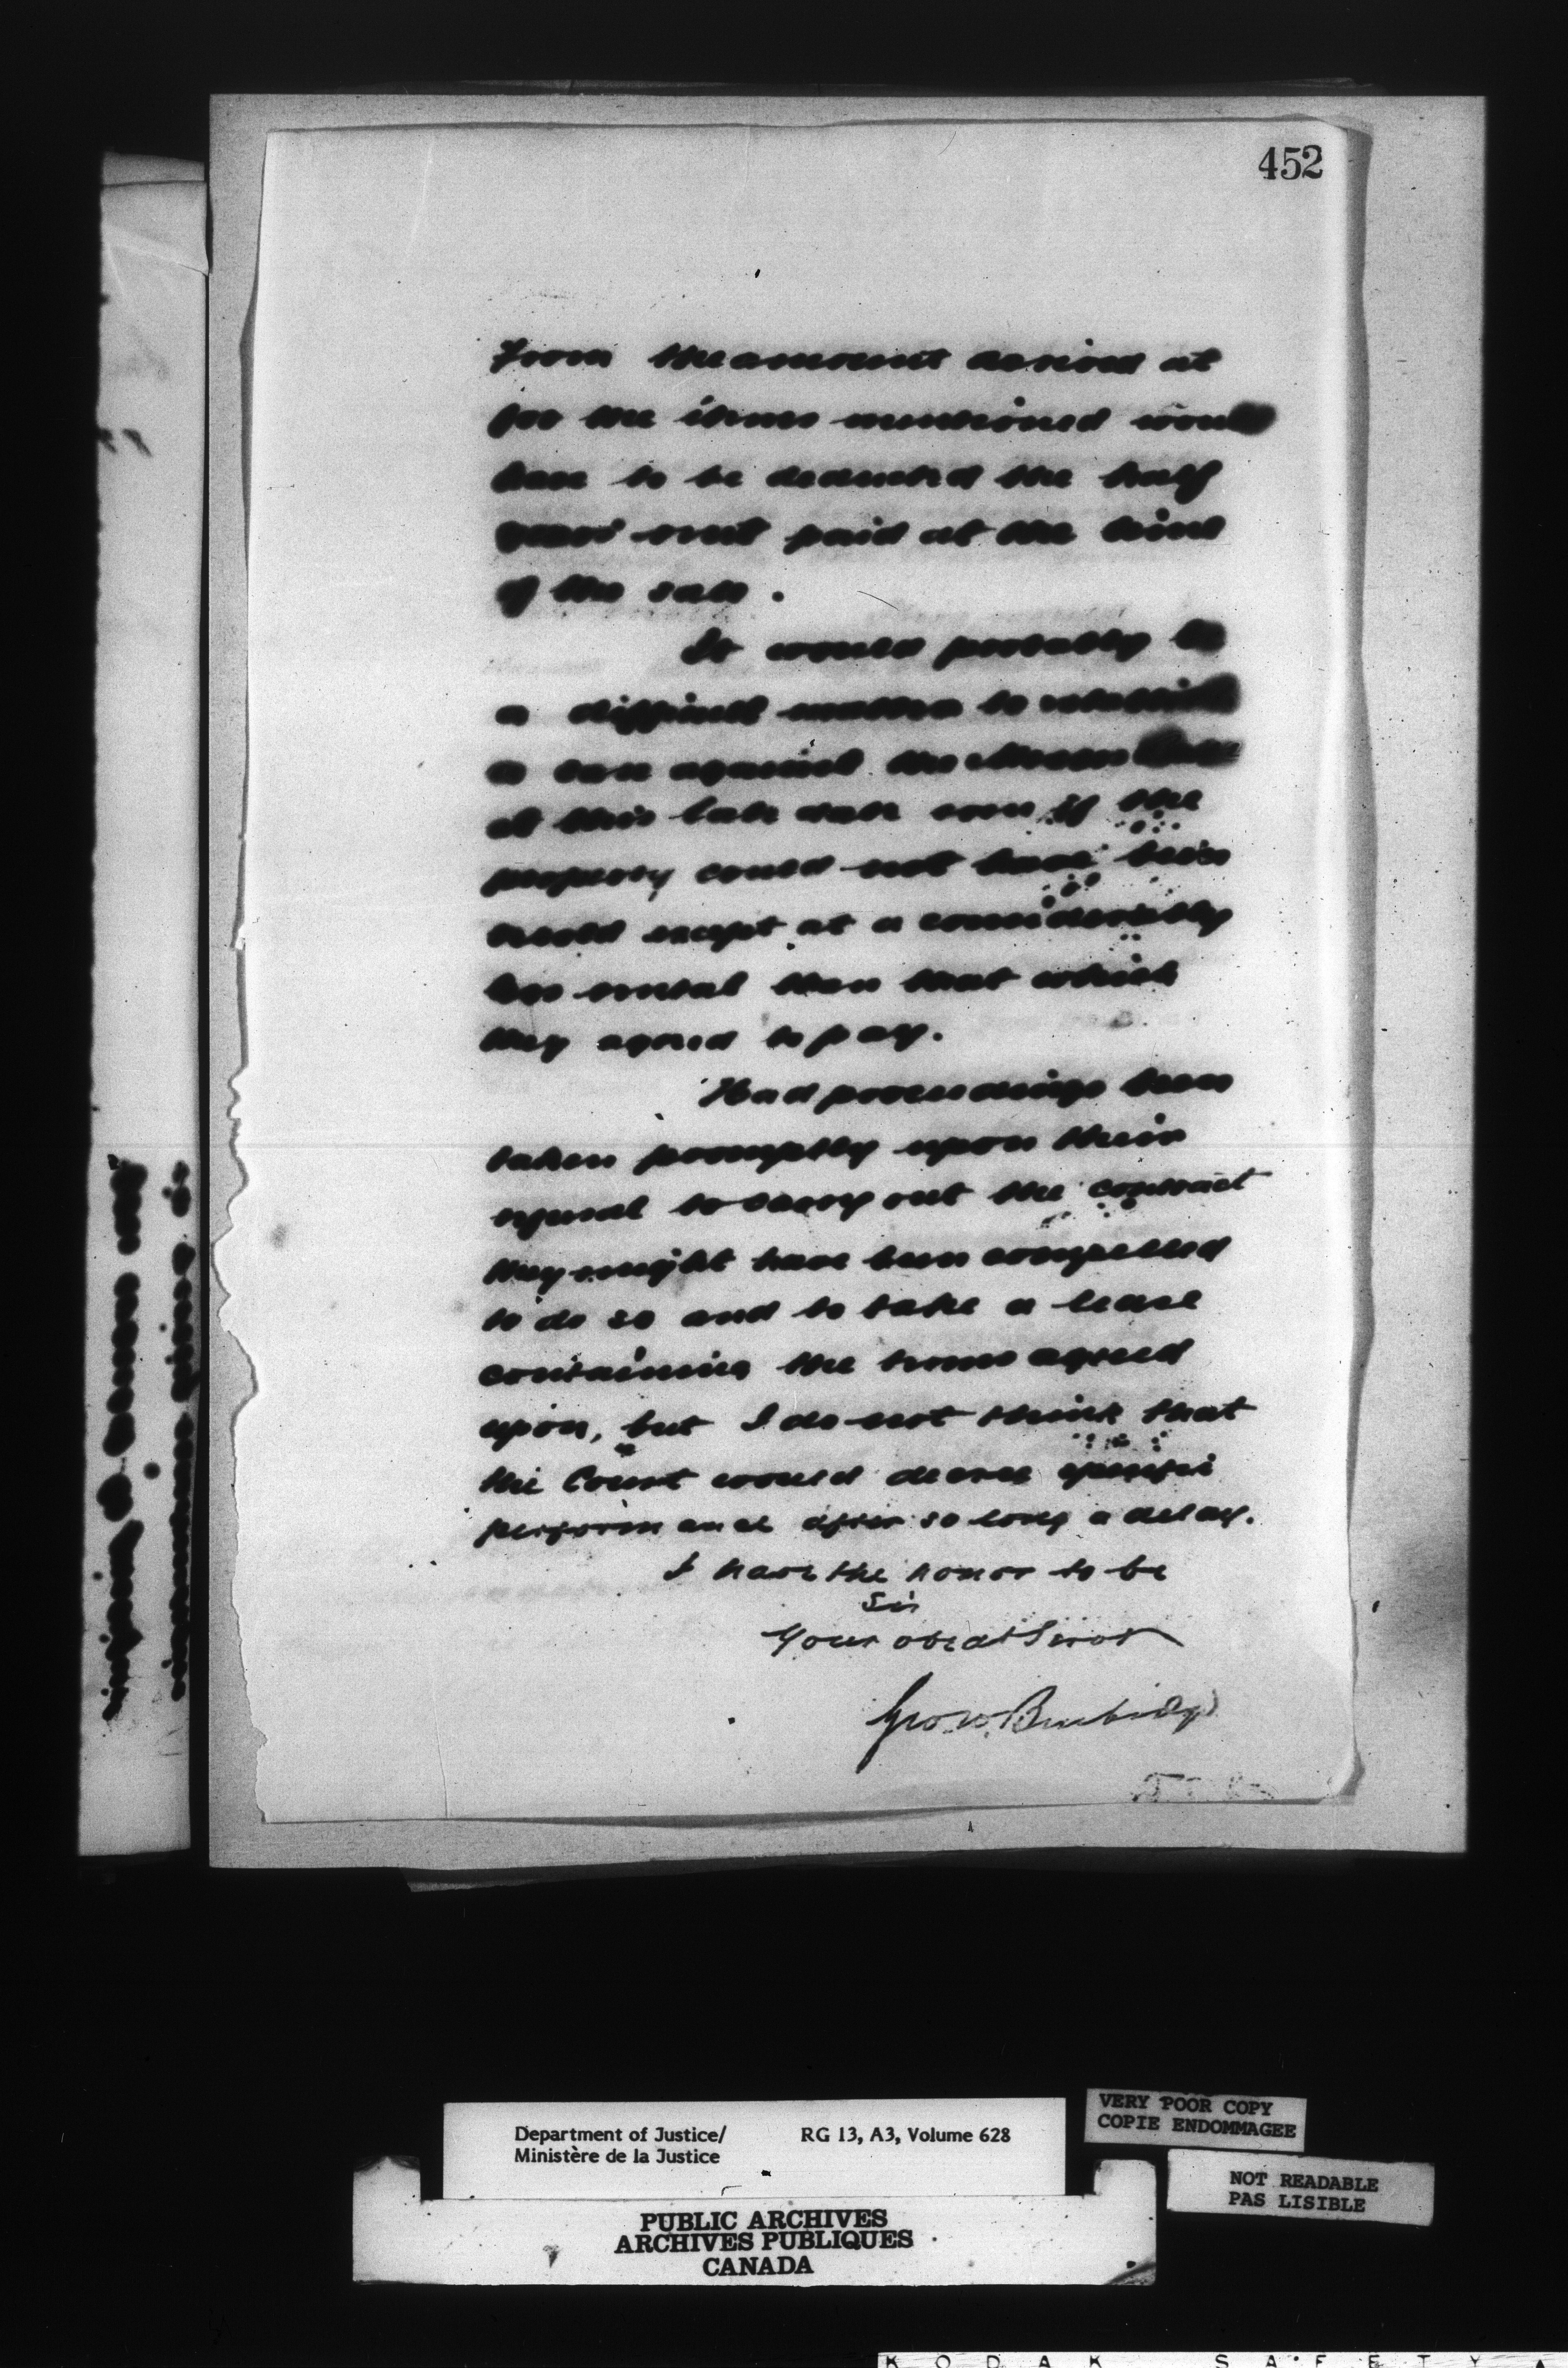 452
From the amount arrived at
for the items mentioned would
have to be deducted the half
years rent paid at the time
of the sale.
It would probably be
a difficult matter to establish
a case against the Messrs
at this late date even if the
property could not have been
resold except at a considerably
less rental than that which
they agreed to pay.
Had proceedings been
taken promptly upon their
refusal to carry out the contract
they might have been compelled
to do so and to take a lease
containing the terms agreed
upon, but I do not think that
the Court would decree specific
performance after so long a delay.
I have the honor to be
Sir
Your obedt Servt
Geo. W. Burbidge
Department of Justice/ RG 13, A3, Volume 628
Ministère de la Justice
VERY POOR COPY
COPIE ENDOMMAGEE
NOT READABLE
PAS LISIBLE
PUBLIC ARCHIVES
ARCHIVES PUBLIQUES
CANADA
KODAK SAFETY